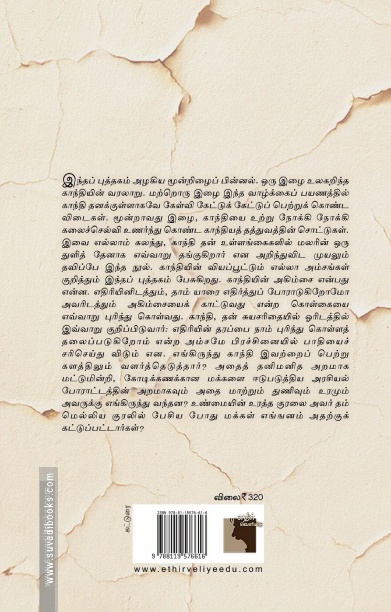 இந்தப் புத்தகம் அழகிய மூன்றிழைப் பின்னல். ஒரு இழை உலகறிந்த
காந்தியின் வரலாறு. மற்றொரு இழை இந்த வாழ்க்கைப் பயணத்தில்
காந்தி தனக்குள்ளாகவே கேள்வி கேட்டுக் கேட்டுப் பெற்றுக் கொண்ட
விடைகள். மூன்றாவது இழை, காந்தியை உற்று நோக்கி நோக்கி
கலைச்செல்வி உணர்ந்து கொண்ட காந்தியத் தத்துவத்தின் சொட்டுகள்.
இவை எல்லாம் கலந்து, காந்தி தன் உள்ளங்கைகளில் மலரின் ஒரு
துளித் தேனாக எவ்வாறு தங்குகிறார் என அறிந்துவிட முயலும்
தவிப்பே இந்த நூல். காந்தியின் வியப்பூட்டும் எல்லா அம்சங்கள்
குறித்தும் இந்தப் புத்தகம் பேசுகிறது. காந்தியின் அகிம்சை என்பது
என்ன. எதிரியினிடத்தும், தாம் யாரை எதிர்த்துப் போராடுகிறோமோ
அவரிடத்தும் அகிம்சையைக் காட்டுவது என்ற கொள்கையை
எவ்வாறு புரிந்து கொள்வது. காந்தி, தன் சுயசரிதையில் ஓரிடத்தில்
இவ்வாறு குறிப்பிடுவார்: எதிரியின் தரப்பை நாம் புரிந்து கொள்ளத்
தலைப்படுகிறோம் என்ற அம்சமே பிரச்சினையில் பாதியைச்
சரிசெய்து விடும் என. எங்கிருந்து காந்தி இவற்றைப் பெற்று
களத்திலும் வளர்த்தெடுத்தார்? அதைத் தனிமனித அறமாக
மட்டுமின்றி, கோடிக்கணக்கான மக்களை ஈடுபடுத்திய அரசியல்
போராட்டத்தின் அறமாகவும் அதை மாற்றும் துணிவும் உரமும்
அவருக்கு எங்கிருந்து வந்தன? உண்மையின் உரத்த குரலை அவர் தம்
மெல்லிய குரலில் பேசிய போது மக்கள் எங்ஙனம் அதற்குக்
கட்டுப்பட்டார்கள்?
விலை ₹ 320
கட்டுரை
ISBN 978-81-19576-61-6
9 788119 576616
எதிர்
வெளியீடு
www.ethirveliyeedu.com
www.suvadibooks.com